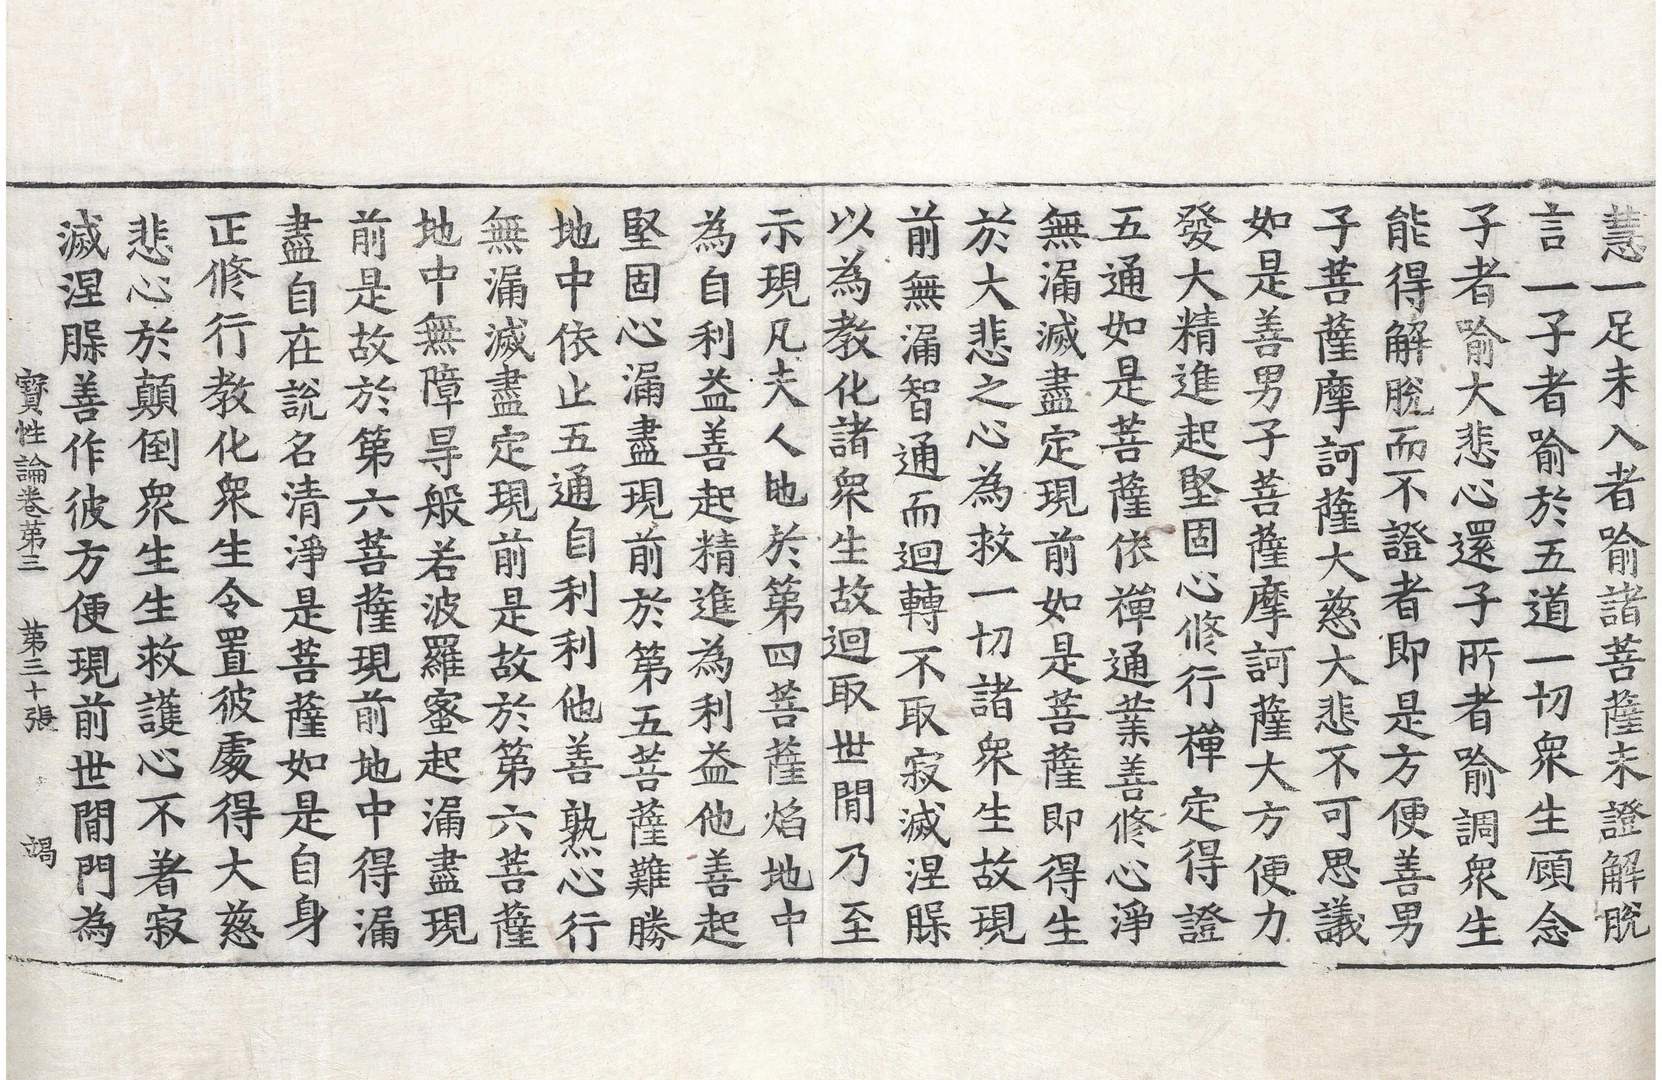 慧一足未入者喻諸菩薩未證解脫
言一子者喻於五道一切衆生願念
子者喻大悲心還子所者喻調衆生
能得解脫而不證者即是方便善男
子菩薩摩訶薩大慈大悲不可思議
如是善男子菩薩摩訶薩大方便力
發大精進起堅固心修行禪定得證
五通如是菩薩依禪通業善修心淨
無漏滅盡定現前如是菩薩即得生
於大悲之心為救一切諸衆生故現
前無漏智通而迴轉不取寂滅涅槃
以為教化諸衆生故迴取世間乃至
示現凡夫人地於第四菩薩焰地中
為自利益善起精進為利益他善起
堅固心漏盡現前於第五菩薩難勝
地中依止五通自利利他善熟心行
無漏滅盡定現前是故於第六菩薩
地中無障㝵般若波羅蜜起漏盡現
前是故於第六菩薩現前地中得漏
盡自在說名清淨是菩薩如是自身
正修行教化衆生令置彼處得大慈
悲心於顛倒衆生生救護心不著寂
滅涅槃善作彼方便現前世間門為
寶性論卷第三　第三十張　竭